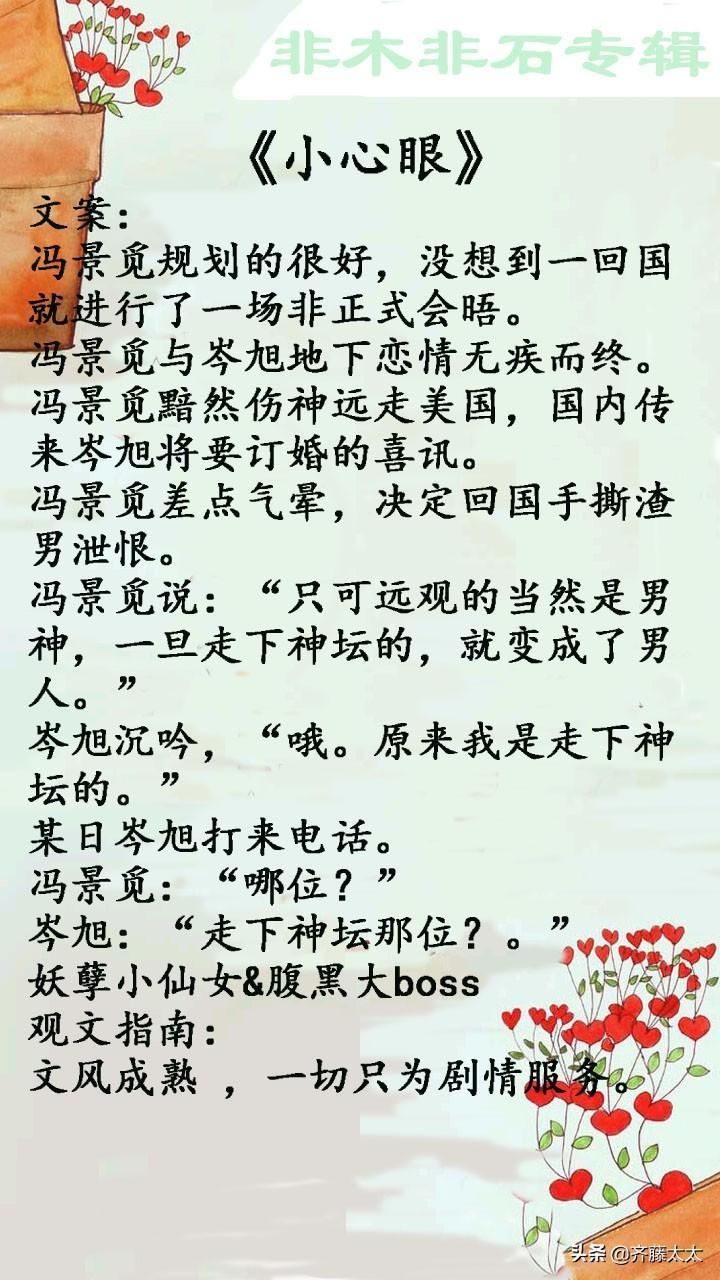 非木非石专辑
《小心眼》
文案：
冯景觅规划的很好，没想到一回国
就进行了一场非正式会晤。
冯景觅与岑旭地下恋情无疾而终。
冯景觅黯然伤神远走美国，国内传
来岑旭将要订婚的喜讯。
冯景觅差点气晕，决定回国手撕渣
男泄恨。
冯景觅说：“只可远观的当然是男
神，一旦走下神坛的，就变成了男
人。”
岑旭沉吟，“哦。原来我是走下神
坛的。”
某日岑旭打来电话。
冯景觅：“哪位？”
岑旭：“走下神坛那位？。”
妖孽小仙女&腹黑大boss
观文指南：
文风成熟 ，一切只为剧情服务。
头条 @齐藤太太